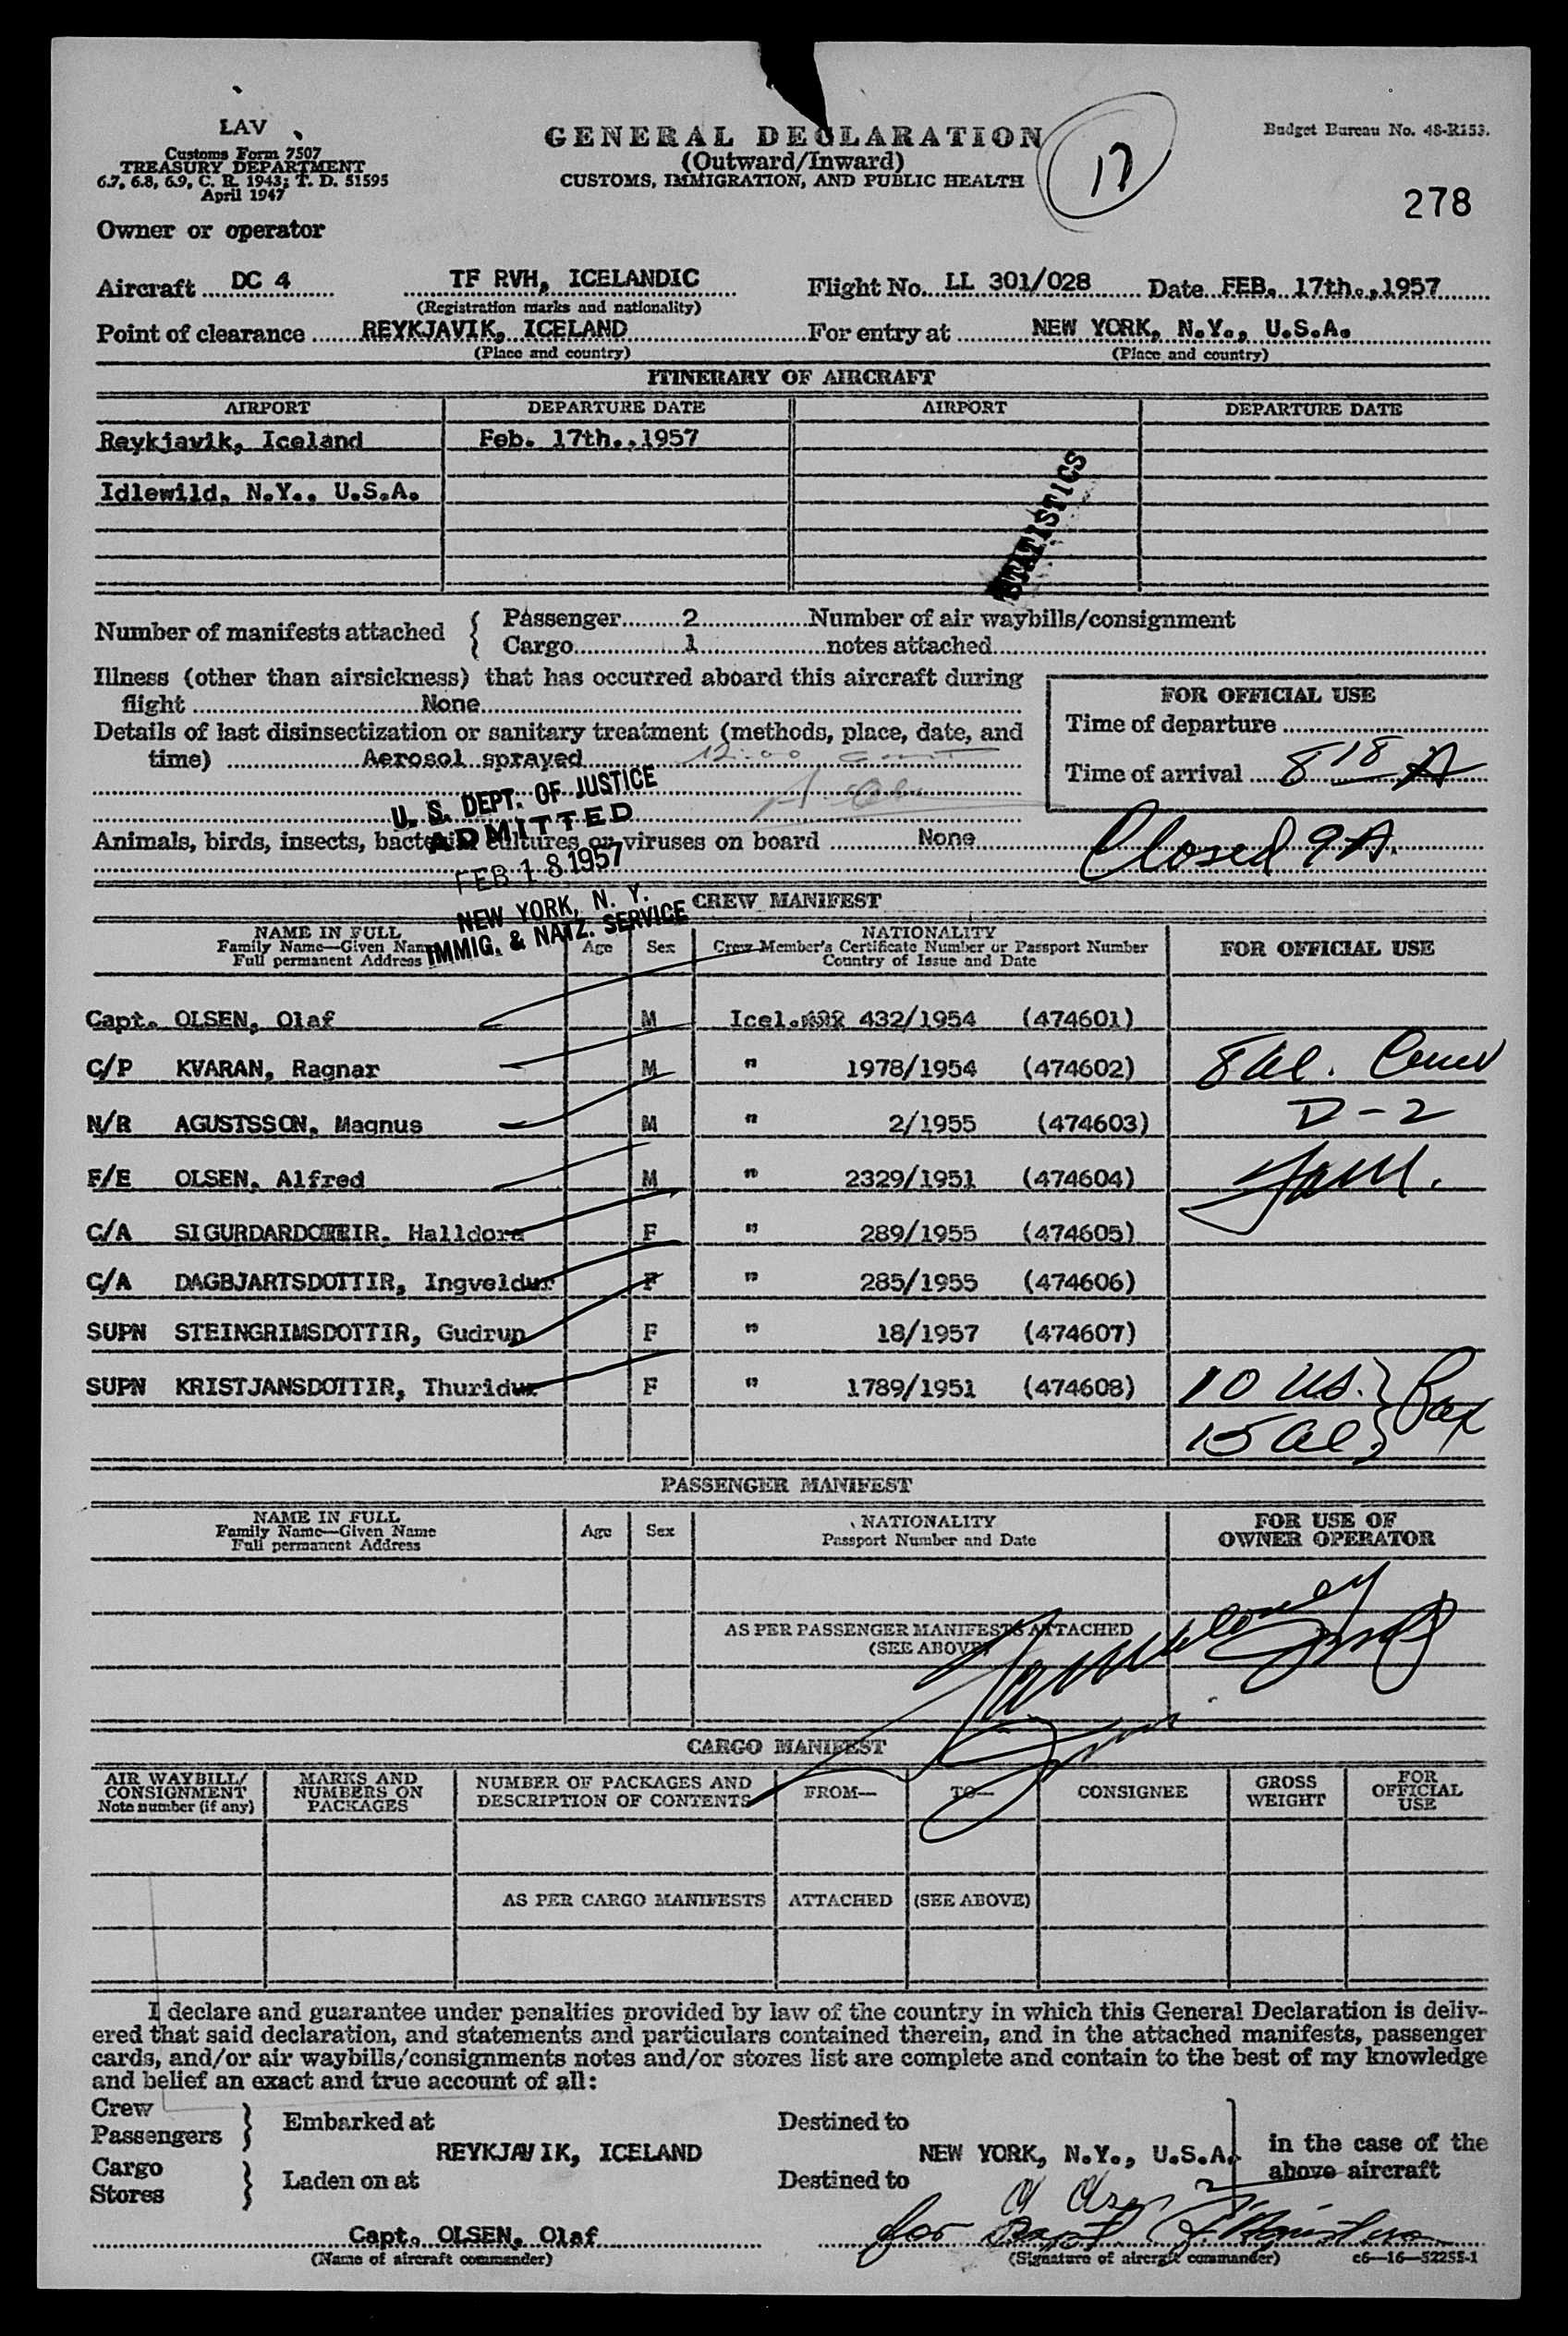 LAV
Customs Form 7507
TREASURY DEPARTMENT
6.7, 6.8, 6.9, C. R. 1943; T. D. 51595
April 1947
GENERAL DECLARATION
(Outward/Inward)
CUSTOMS, IMMIGRATION, AND PUBLIC HEALTH
17
Budget Bureau No. 48-R153.
278
Owner or operator
Aircraft DC 4 TF RVH, ICELANDIC Flight No. LL 301/028 Date FEB. 17th.,1957
(Registration marks and nationality)
Point of clearance REYKJAVIK, ICELAND For entry at NEW YORK, N.Y., U.S.A.
(Place and country) (Place and country)
ITINERARY OF AIRCRAFT
AIRPORT DEPARTURE DATE AIRPORT DEPARTURE DATE
Reykjavik, Iceland Feb. 17th.,1957
Idlewild, N.Y., U.S.A.
STATISTICS
Number of manifests attached { Passenger 2 Number of air waybills/consignment
Cargo 1 notes attached
Illness (other than airsickness) that has occurred aboard this aircraft during
flight None
Details of last disinsectization or sanitary treatment (methods, place, date, and
time) Aerosol sprayed 12:00 GMT
FOR OFFICIAL USE
Time of departure
Time of arrival 8 18 A
Closed 9 A.
U. S. DEPT. OF JUSTICE
ADMITTED
FEB 18 1957
NEW YORK, N. Y.
IMMIG. & NATZ. SERVICE
Animals, birds, insects, bacterial cultures or viruses on board None
CREW MANIFEST
NAME IN FULL
Family Name—Given Name
Full permanent Address
Age Sex
NATIONALITY
Crew Member's Certificate Number or Passport Number
Country of Issue and Date
FOR OFFICIAL USE
Capt. OLSEN, Olaf M Icel. 432/1954 (474601)
C/P KVARAN, Ragnar M " 1978/1954 (474602) 8 al. Crew
N/R AGUSTSSON, Magnus M " 2/1955 (474603) D-2
F/E OLSEN, Alfred M " 2329/1951 (474604)
C/A SIGURDARDOTTIR, Halldora F " 289/1955 (474605)
C/A DAGBJARTSDOTTIR, Ingveldur F " 285/1955 (474606)
SUPN STEINGRIMSDOTTIR, Gudrun F " 18/1957 (474607)
SUPN KRISTJANSDOTTIR, Thuridur F " 1789/1951 (474608) 10 US. } Pax
15 al }
PASSENGER MANIFEST
NAME IN FULL
Family Name—Given Name
Full permanent Address
Age Sex
NATIONALITY
Passport Number and Date
FOR USE OF
OWNER OPERATOR
AS PER PASSENGER MANIFESTS ATTACHED
(SEE ABOVE)
CARGO MANIFEST
AIR WAYBILL/
CONSIGNMENT
Note number (if any)
MARKS AND
NUMBERS ON
PACKAGES
NUMBER OF PACKAGES AND
DESCRIPTION OF CONTENTS
FROM— TO— CONSIGNEE
GROSS
WEIGHT
FOR
OFFICIAL
USE
AS PER CARGO MANIFESTS ATTACHED (SEE ABOVE)
I declare and guarantee under penalties provided by law of the country in which this General Declaration is deliv-
ered that said declaration, and statements and particulars contained therein, and in the attached manifests, passenger
cards, and/or air waybills/consignments notes and/or stores list are complete and contain to the best of my knowledge
and belief an exact and true account of all:
Crew
Passengers } Embarked at Destined to
REYKJAVIK, ICELAND NEW YORK, N.Y., U.S.A. in the case of the
above aircraft
Cargo
Stores } Laden on at Destined to
Capt. OLSEN, Olaf for Capt
(Name of aircraft commander) (Signature of aircraft commander) c6—16—52255-1